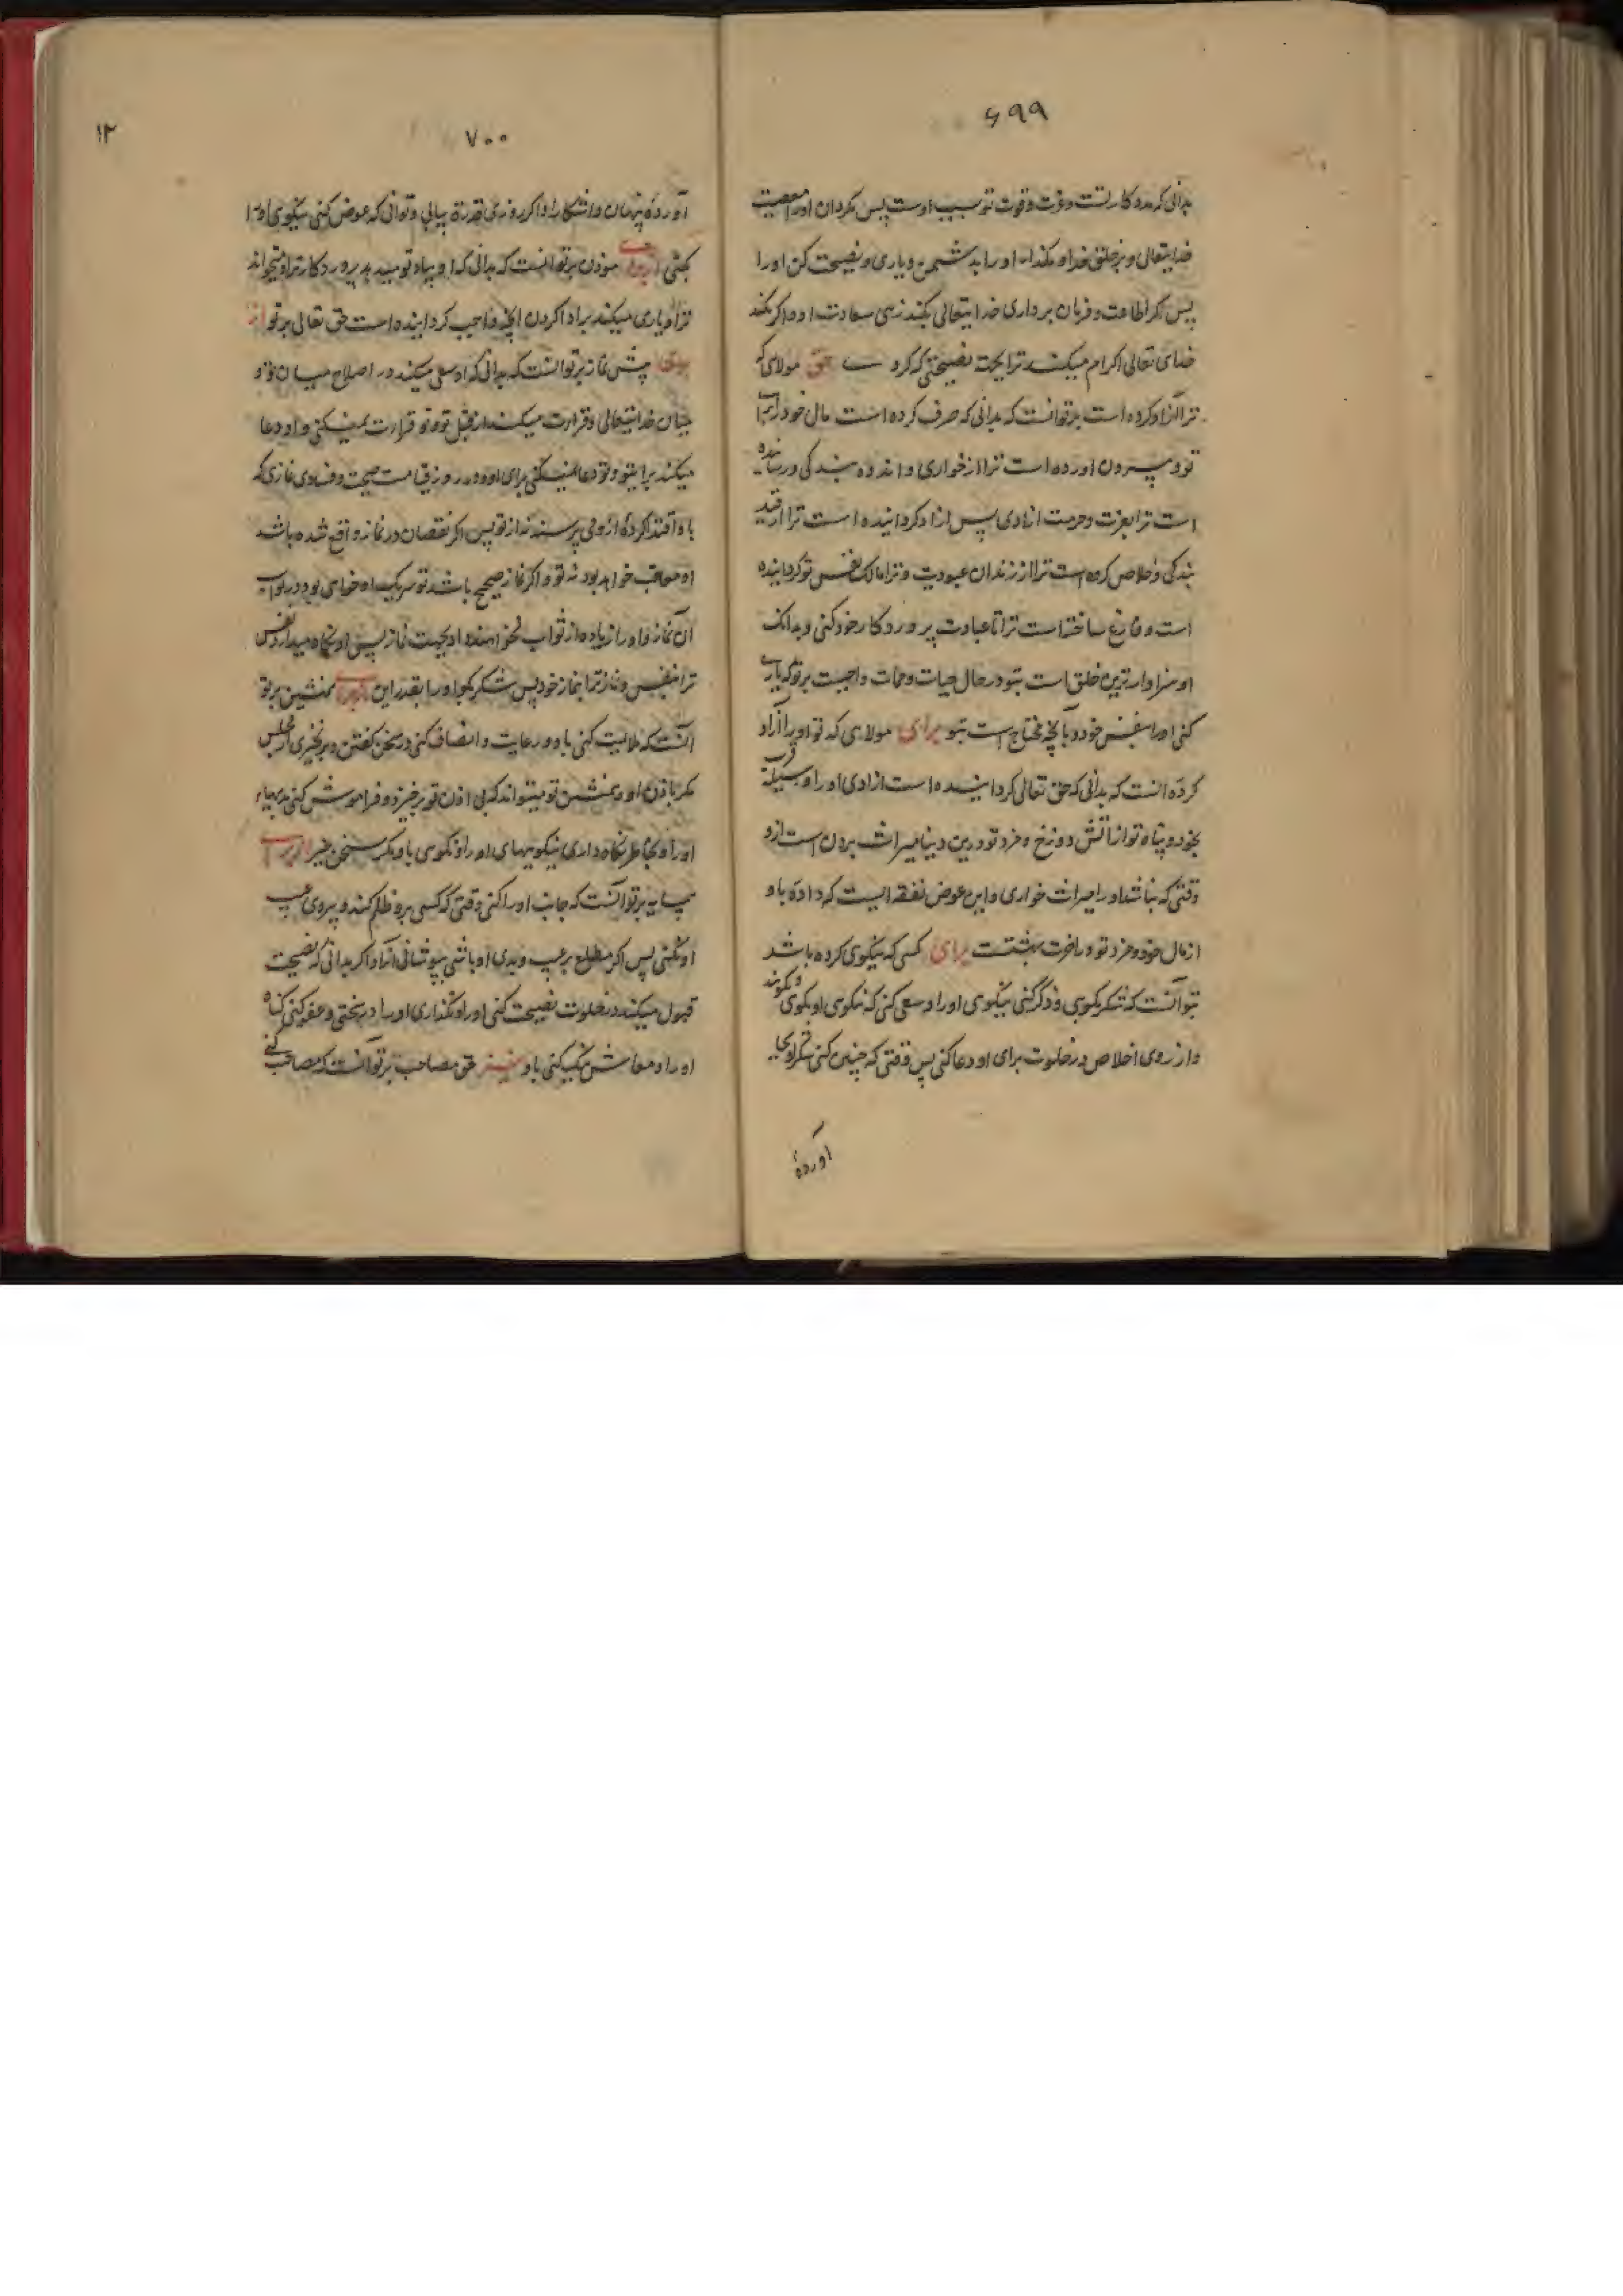 ۶۹۹
بدانی که مددکار تست و عزت و قوت تو بسبب اوست پس مگردان او را معصیت
خدایتعالی و بر خلق خدا و مگذار او را بدشمن و یاری و نصیحت کن او را
پس اگر اطاعت و فرمان برداری خدایتعالی بکند زهی سعادت او و اگر نکند
خدای تعالی اکرام میکند ترا بجهة نصیحتی که کردی حق مولای که
ترا آزاد کرده است بر تو آنست که بدانی که صرف کرده است مال خود را برای
تو و بیرون اورده است ترا از خواری و اندوه بندگی و رسانیده
است ترا بعزت و حرمت ازادی پس ازاد کردانیده است ترا از قید
بندگی و خلاص کرده است ترا از زندان عبودیت و ترا مالک نفس تو کردانیده
است و فارغ ساخته است ترا تا عبادت پروردکار خود کنی و بدانک
او سزاوارترین خلق است بتو در حال حیات و ممات و واجبست بر تو که یاری
کنی او را بنفس خود و بآنچه محتاج است بتو برای مولای که تو او را آزاد
کردهٔ انست که بدانی که حق تعالی کردانیده است ازادی او را وسیلهٔ قرب
بخود و پناه تو از اتش دوزخ و مزد تو درین دنیا میراث بردن است ازو
وقتی که نباشد او را میراث خواری و این عوض نفقه ایست که دادهٔ باو
از مال خود و مزد تو در اخرت بهشتست برای کسی که نیکوی کرده باشد
بتو آنست که شکر بگویی و ذکر کنی نیکوی او را و سعی کنی که نیکوی او بگوی و بگویند
و از روی اخلاص در خلوت برای او دعا کنی پس وقتی که چنین کنی شکر او بجا
آوردهٔ
۷۰۰
۱۲
آوردهٔ پنهان و اشکارا و اگر روزی قدرة بیابی و توانی که عوض کنی نیکوی او را
بکنی موذن بر تو انست که بدانی که او بیاد تو میدهد پروردکار ترا و میخواند
ترا و یاری میکند بر ادا کردن انچه واجب کردانیده است حق تعالی بر تو
پیش نماز بر تو انست که بدانی که او سعی میکند در اصلاح میان تو و
میان خدایتعالی و قراءت میکند از قبل تو و تو قراءت نمیکنی و او دعا
میکند برای تو و تو دعا نمیکنی برای او و در روز قیامت صحت و فساد نمازی که
باو اقتدا کردهٔ از وی پرسند نه از تو پس اگر نقصان در نماز واقع شده باشد
او معاقب خواهد بود نه تو و اگر نماز صحیح باشد تو شریک او خواهی بود در ثواب
آن نماز و او را زیاده از ثواب نخواهند داد بجهت نماز پس او نگاه میدارد نفس
ترا بنفس و نماز ترا بنماز خود پس شکر بگو او را بقدر این همنشین بر تو
انست که ملایمت کنی باو و رعایت و انصاف کنی در سخن گفتن و بر نخیزی از مجلس
مگر باذن او و همنشین تو میتواند که بی اذن تو برخیزد و فراموش کنی بدیهای
او را و بخاطر نگاه داری نیکوییهای او را و نگوی باو مگر سخن خیر
همسایه بر تو آنست که جانب او را کنی وقتی که کسی برو ظلم کند و پیروی عیب
او نکنی پس اگر مطلع بر عیب و بدی او باشی بپوشانی آنرا و اگر بدانی که نصیحت
قبول میکند در خلوت نصیحت کنی او را و نگذاری او را در سختی و عفو کنی گناه
او را و معاش نیک کنی باو حق مصاحب بر تو آنست که مصاحبت کنی